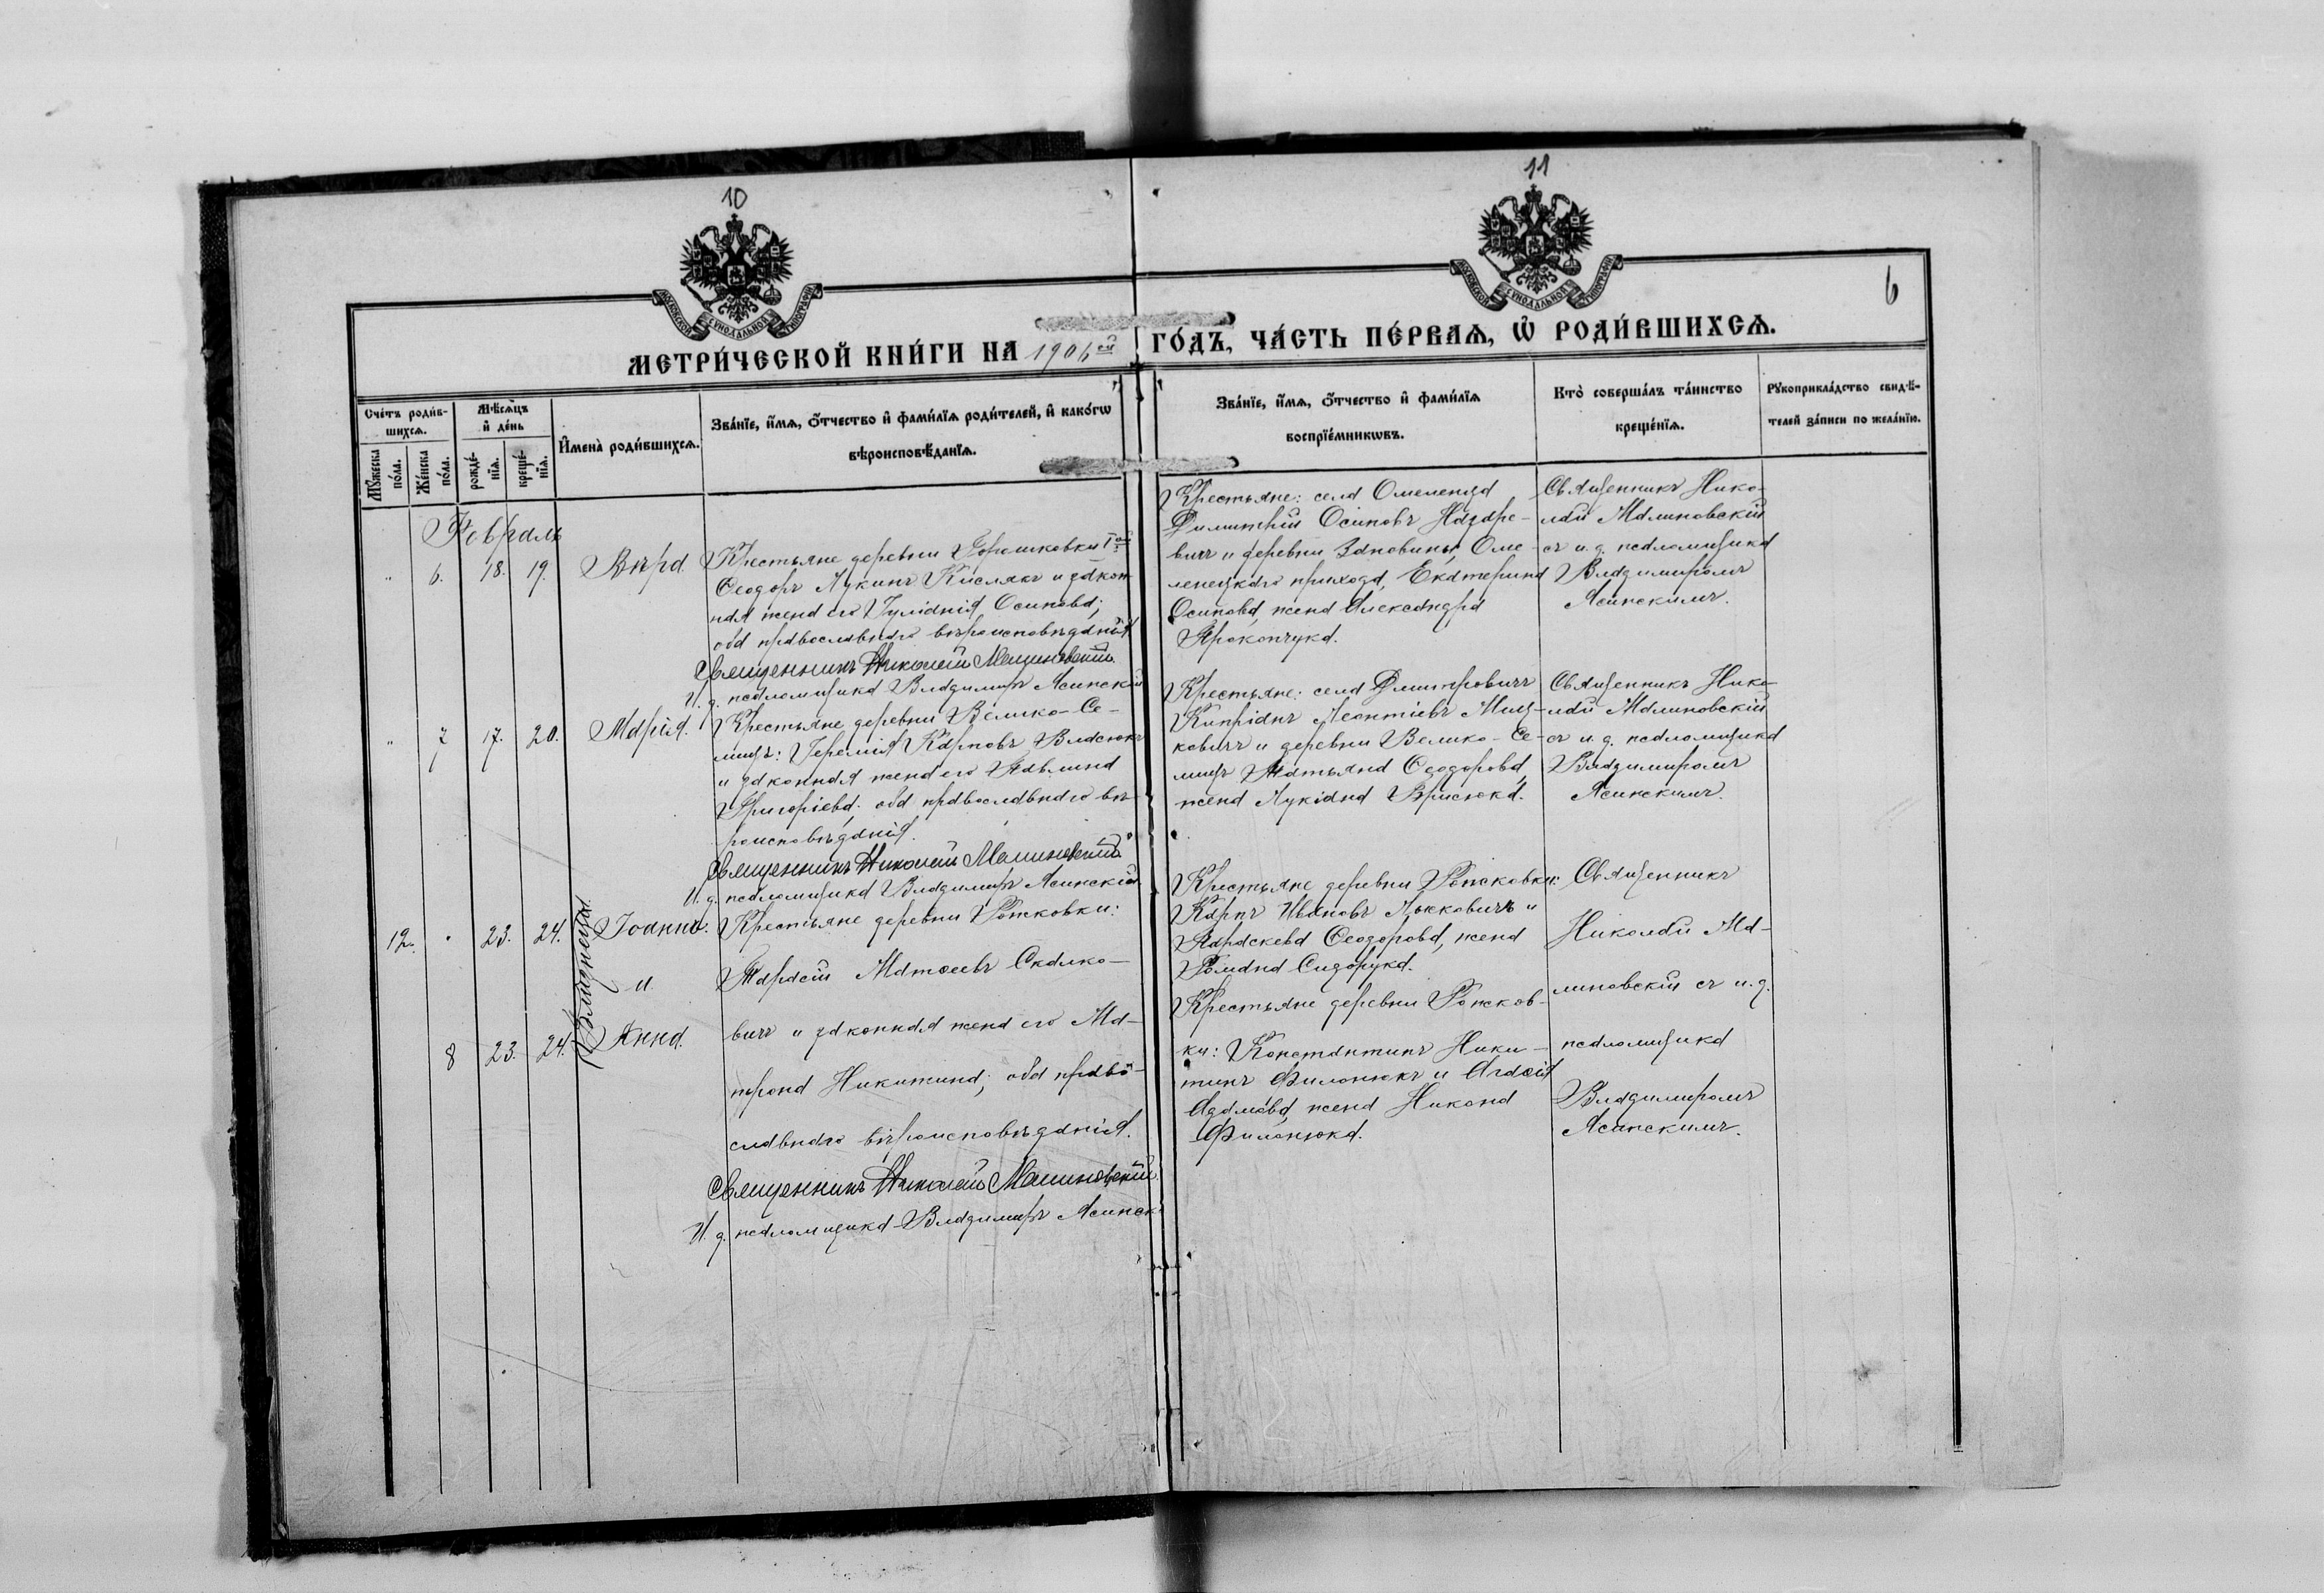 10
11
6
МОСКОВСКОЙ СѴНОДАЛЬНОЙ ТИПОГРАФІИ
МОСКОВСКОЙ СѴНОДАЛЬНОЙ ТИПОГРАФІИ
МЕТРИ́ЧЕСКОЙ КНИ́ГИ НА 1906ой ГО́ДЪ, ЧА́СТЬ ПЕ́РВАѦ, Ѡ҆ РОДИ́ВШИХСѦ.
Сче́тъ роди́в-
шихсѧ.
Мꙋ́жеска по́ла.
Же́нска по́ла.
Мѣ́сѧцъ
и҆ де́нь
рожде́-
нїѧ.
креще́-
нїѧ.
И҆мена̀ роди́вшихсѧ.
Зва́нїе, и҆́мѧ, ѻ҆́тчество и҆ фами́лїѧ роди́телей, и҆ како́гѡ
вѣроисповѣ́данїѧ.
Зва́нїе, и҆́мѧ, ѻ҆́тчество и҆ фами́лїѧ
воспрїе́мникѡвъ.
Кто̀ соверша́лъ та́инство
креще́нїѧ.
Рꙋкоприкла́дство свидѣ́-
телей за́писи по жела́нїю.
Февраль
" 6. 18. 19. Вѣра.
Крестьяне деревни Горошковки Iой
Ѳеодоръ Лукинъ Кислякъ и закон-
ная жена его Іуліанія Осипова;
оба православнаго вѣроисповѣданія
Священникъ Николай Малиновскій
И. д. псаломщика Владимиръ Ясинскій
Крестьяне: села Омеленца
Димитрій Осиповъ Назаре-
вичъ и деревни Зановины, Оме-
ленецкаго прихода, Екатерина
Осипова, жена Александра
Прокопчука.
Священникъ Нико-
лай Малиновскій
съ и. д. псаломщика
Владимиромъ
Ясинскимъ.
" 7 17. 20. Марія.
Крестьяне деревни Велико-Се-
лищъ: Іеремія Карповъ Власюкъ
и законная жена его Павлина
Григоріева; оба православнаго вѣ-
роисповѣданія.
Священникъ Николай Малиновскій
И. д. псаломщика Владимиръ Ясинскій
Крестьяне: села Дмитровичъ
Кипріанъ Леонтіевъ Миц-
кевичъ и деревни Велико-Се-
лищъ Татьяна Ѳеодорова,
жена Лукіана Борисюка.
Священникъ Нико-
лай Малиновскій
съ и. д. псаломщика
Владимиромъ
Ясинскимъ.
Близнецы.
12. " 23. 24. Іоаннъ.
и
8 23. 24. Анна.
Крестьяне деревни Рожковки:
Тарасій Матѳеевъ Скалко-
вичъ и законная жена его Ма-
трона Никитина; оба право-
славнаго вѣроисповѣданія.
Священникъ Николай Малиновскій
И. д. псаломщика Владимиръ Ясинск
Крестьяне деревни Рожковки:
Карпъ Ивановъ Лыковичъ и
Параскева Ѳеодорова, жена
Романа Сидорука.
Крестьяне деревни Рожков-
ки: Константинъ Ники-
тинъ Филонюкъ и Агаѳія
Адамова, жена Никона
Филонюка.
Священникъ
Николай Ма-
линовскій съ и. д.
псаломщика
Владимиромъ
Ясинскимъ.